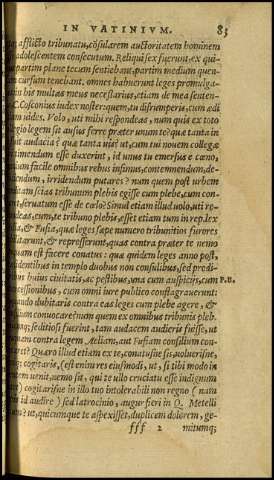 IN VATINIVM. 83
afflicto tribunatu, cōsularem auctoritatem hominem
adolescentem consecutum. Reliqui sex fuerunt. ex qui-
partim plane tecum sentiebant, partim medium quen-
cursum tenebant. omnes habuerunt leges promulga-
his multas meas necessarias, etiam de mea senten-
C. Cosconius index noster: quem, tu disrumperis, cum ædi
uides. Volo, uti mihi respondeas, num quis ex toto
legio legem sit ausus ferre præter unum te? quæ tanta in
audacia? quæ tanta uis? ut, cum tui nouem collegæ
timendum esse duxerint, id unus tu emersus e cœno,
facile omnibus rebus infimus, contemnendum, de-
irridendum putares? num quem post urbem
scias tribunum plebis egisse cum plebe, cum con-
seruatum esse de cœlo? Simul etiam illud uolo, uti re-
cum, te tribuno plebis, esset etiam tum in rep. lex
& Fufia, quæ leges sæpe numero tribunitios furores
& represserunt, quas contra præter te nemo
est facere conatus: quæ quidem leges anno post,
sedentibus in templo duobus non consulibus, sed prodi-
huius ciuitatis, ac pestibus, una cum auspicijs, cum P.R.
intercessionibus, cum omni iure publico conflagrauerunt:
dubitaris contra eas leges cum plebe agere, &
conuocare? num quem ex omnibus tribunis pleb.
seditiosi fuerint, tam audacem audieris fuisse, ut
contra legem Aeliam, aut Fufiam concilium con-
Quæro illud etiam ex te, conatusne sis, uoluerisne,
cogitaris, (est enim res eiusmodi, ut, si tibi modo in
uenit, nemo sit, qui te ullo cruciatu esse indignum
cogitarisne in illo tuo intolerabili non regno (nam
id audire) sed latrocinio, augur fieri in Q. Metelli
ut, quicumque te aspexisset, duplicem dolorem, ge-
fff 2 mitumq;